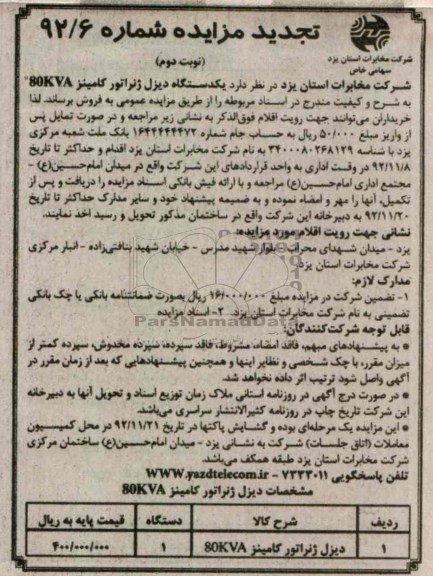 تجدید مزایده شماره ۹۲/۶
(نوبت دوم)
شرکت مخابرات استان یزد
سهامی خاص
شرکت مخابرات استان یزد در نظر دارد یکدستگاه دیزل ژنراتور کامینز 80KVA
به شرح و کیفیت مندرج در اسناد مربوطه را از طریق مزایده عمومی به فروش برساند. لذا
خریداران می‌توانند جهت رویت اقلام فوق‌الذکر به نشانی زیر مراجعه و در صورت تمایل پس
از واریز مبلغ ۵۰/۰۰۰ ریال به حساب جام شماره ۱۶۴۴۴۴۴۴۷۲ بانک ملت شعبه مرکزی
یزد با شناسه ۳۴۰۰۰۸۰۲۶۸۱۲۹ به نام شرکت مخابرات استان یزد اقدام و حداکثر تا تاریخ
۹۲/۱۱/۸ در وقت اداری به واحد قراردادهای این شرکت واقع در میدان امام‌حسین(ع) -
مجتمع اداری امام‌حسین(ع) مراجعه و با ارائه فیش بانکی اسناد مزایده را دریافت و پس از
تکمیل، آنها را مهر و امضاء نموده و به ضمیمه پیشنهاد خود و سایر مدارک حداکثر تا تاریخ
۹۲/۱۱/۲۰ به دبیرخانه این شرکت واقع در ساختمان مذکور تحویل و رسید اخذ نمایند.
نشانی جهت رویت اقلام مورد مزایده:
یزد - میدان شهدای محراب - بلوار شهید مدرس - خیابان شهید بنافتی‌زاده - انبار مرکزی
شرکت مخابرات استان یزد
مدارک لازم:
۱- تضمین شرکت در مزایده مبلغ ۱۶/۰۰۰/۰۰۰ ریال بصورت ضمانتنامه بانکی یا چک بانکی
تضمینی به نام شرکت مخابرات استان یزد. ۲- اسناد مزایده
ParsNamadData
قابل توجه شرکت‌کنندگان:
* به پیشنهادهای مبهم، فاقد امضاء، مشروط، فاقد سپرده، سپرده مخدوش، سپرده کمتر از
میزان مقرر، با چک شخصی و نظایر اینها و همچنین پیشنهادهایی که بعد از زمان مقرر در
آگهی واصل شود ترتیب اثر داده نخواهد شد.
* در صورت درج آگهی در روزنامه استانی ملاک زمان توزیع اسناد و تحویل آنها به دبیرخانه
این شرکت تاریخ چاپ در روزنامه کثیرالانتشار سراسری می‌باشد.
* این مزایده یک مرحله‌ای بوده و گشایش پاکتها در تاریخ ۹۲/۱۱/۲۱ در محل کمیسیون
معاملات (اتاق جلسات) شرکت به نشانی یزد - میدان امام‌حسین(ع) ساختمان مرکزی
شرکت مخابرات استان یزد طبقه همکف می‌باشد.
تلفن پاسخگویی ۷۲۳۳۰۱۱ - WWW.yazdtelecom.ir
مشخصات دیزل ژنراتور کامینز 80KVA
ردیف شرح کالا دستگاه قیمت پایه به ریال
۱ دیزل ژنراتور کامینز 80KVA ۱ ۴۰۰/۰۰۰/۰۰۰